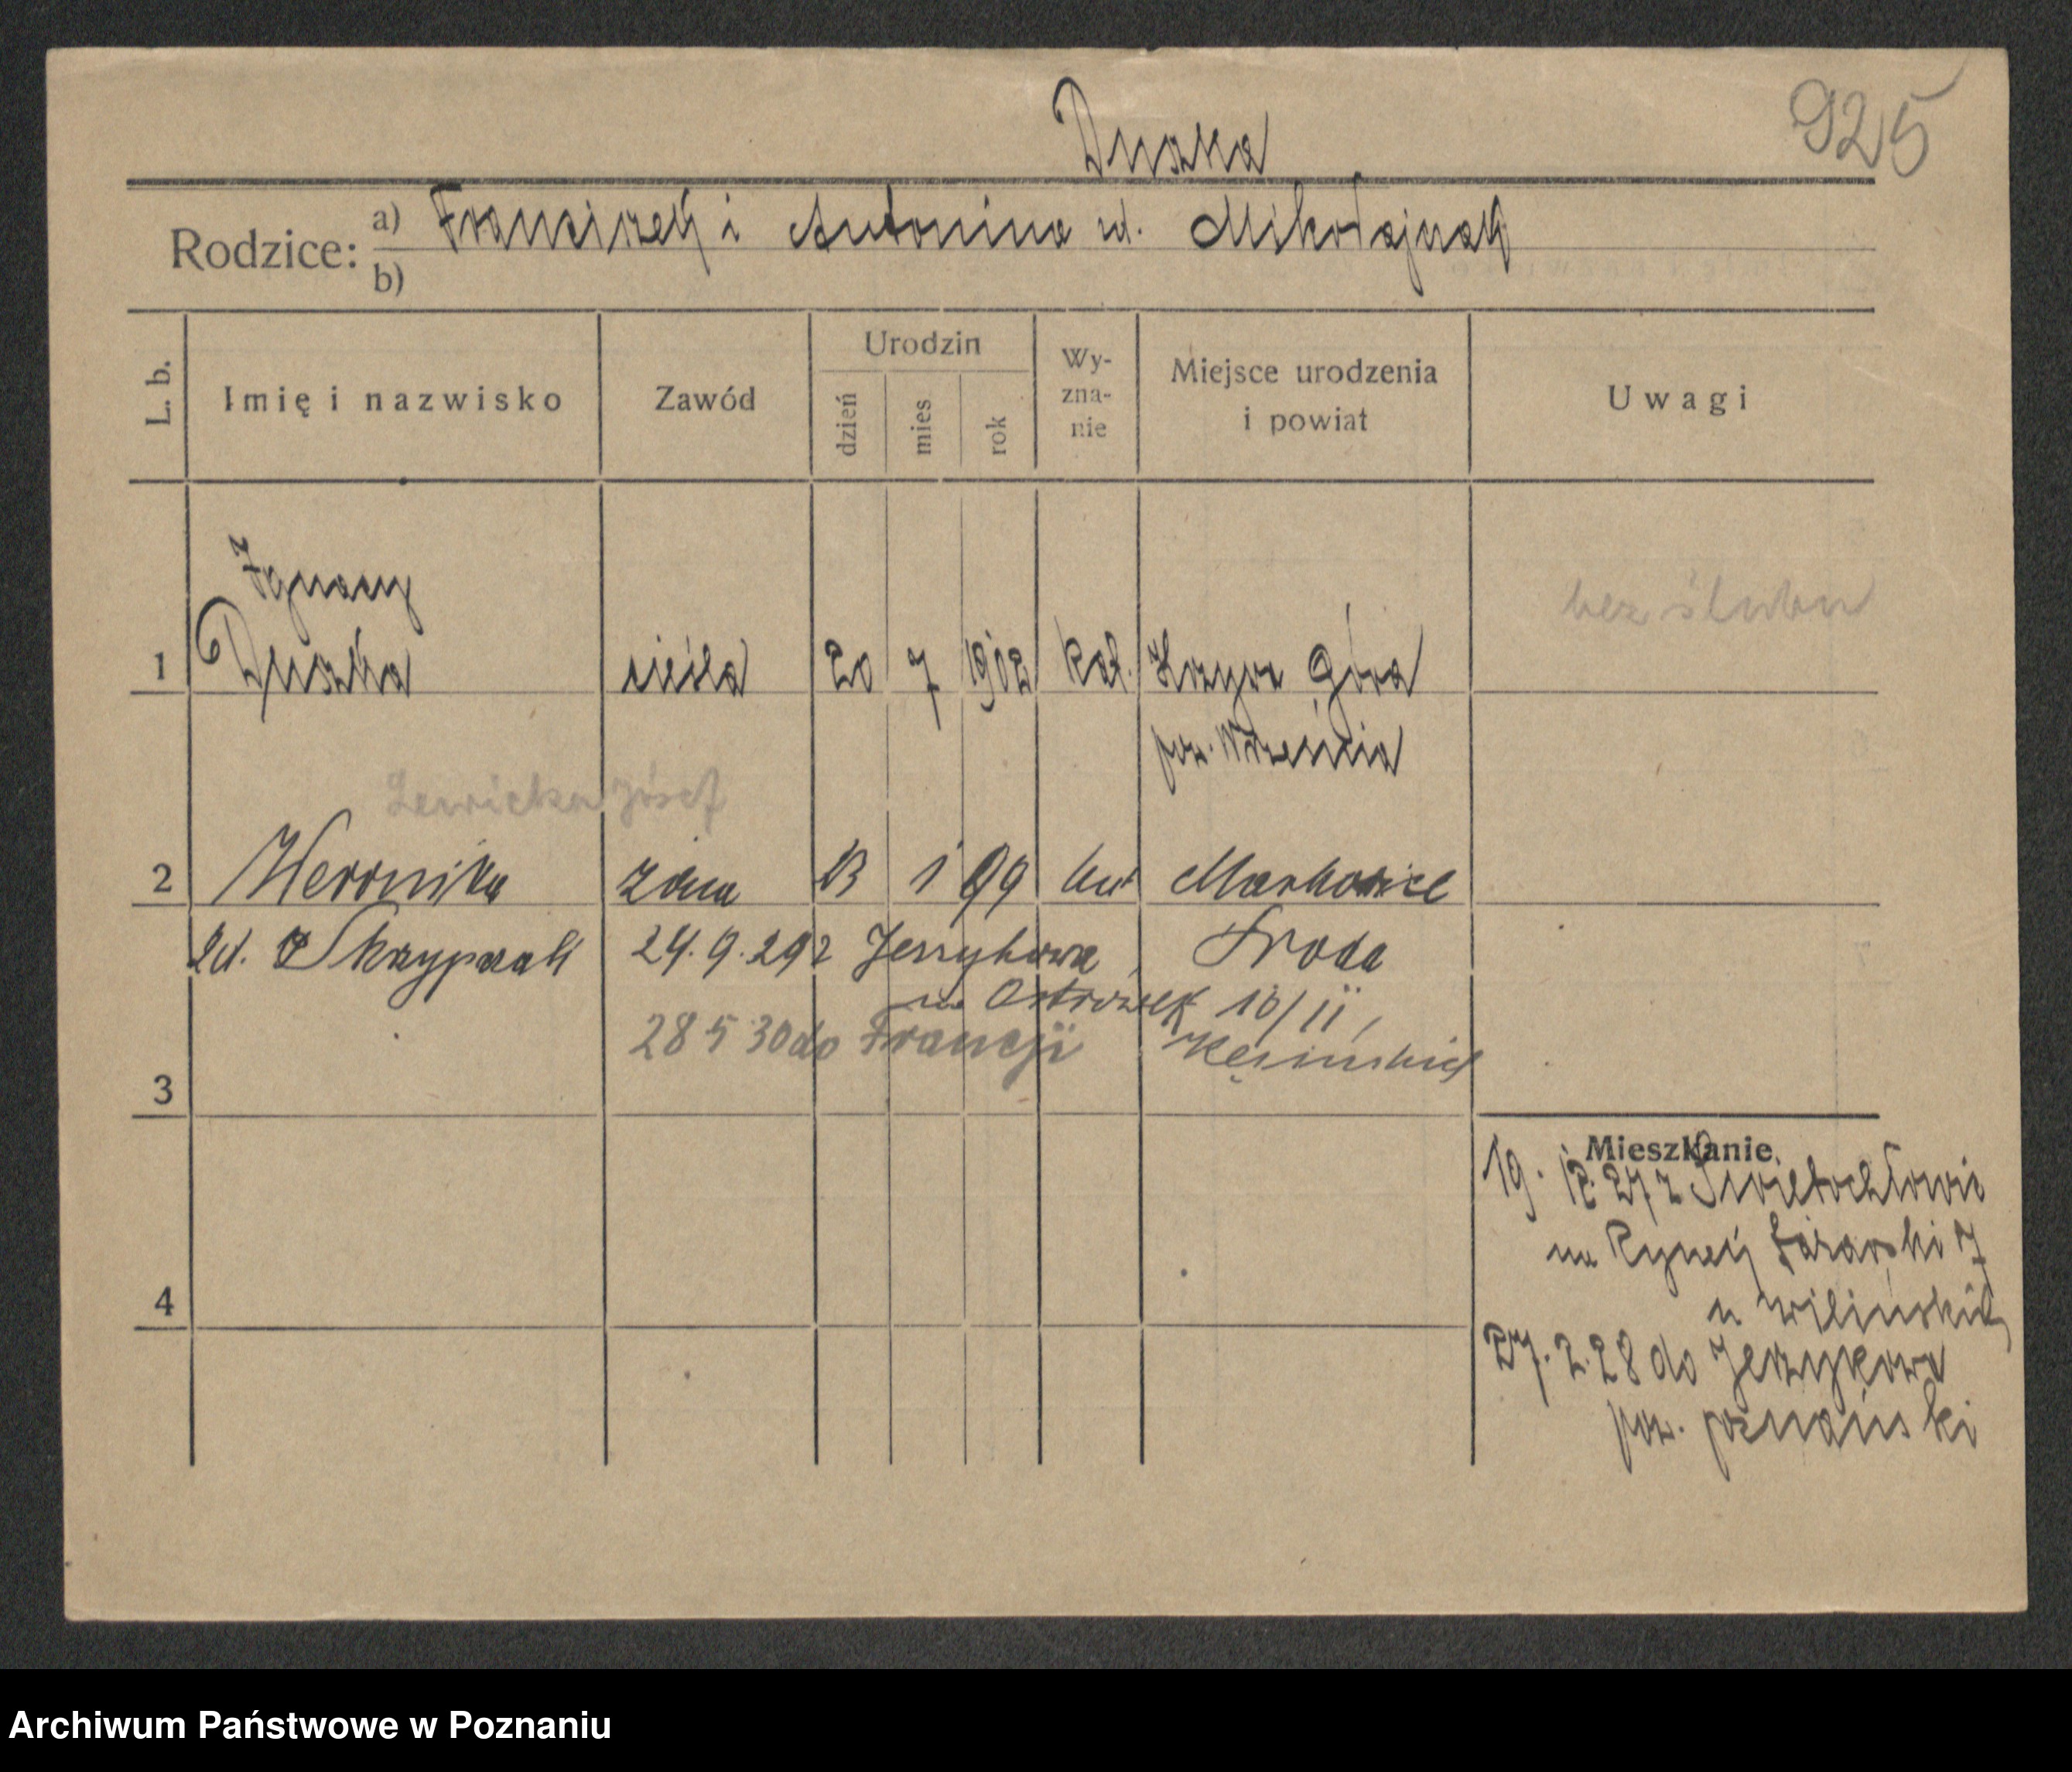 925
Duszka
Rodzice: a) Franciszek i Antonina ud. Mikołajczak
b)
L. b.
Imię i nazwisko
Zawód
Urodzin
dzień
mies
rok
Wy-
zna-
nie
Miejsce urodzenia
i powiat
Uwagi
Ignacy
bez ślubu
1 Duszka cieśla 20 7 1902 kat. Góra
pow. Września
Lewicka Józef
2 Weronika żona 13 1 99 kat
ud. Skrzypczak 24.9.29 z Jerzykowa Środa
na Ostrówek 10/11,
28 5 30 do Francji
3
Mieszkanie.
19. 12. 27 z Świętochłowic
na Rynek Łazarski 7
u Wilińskich
4
27. 2. 28 do Jerzykowa
pow. poznański
Archiwum Państwowe w Poznaniu